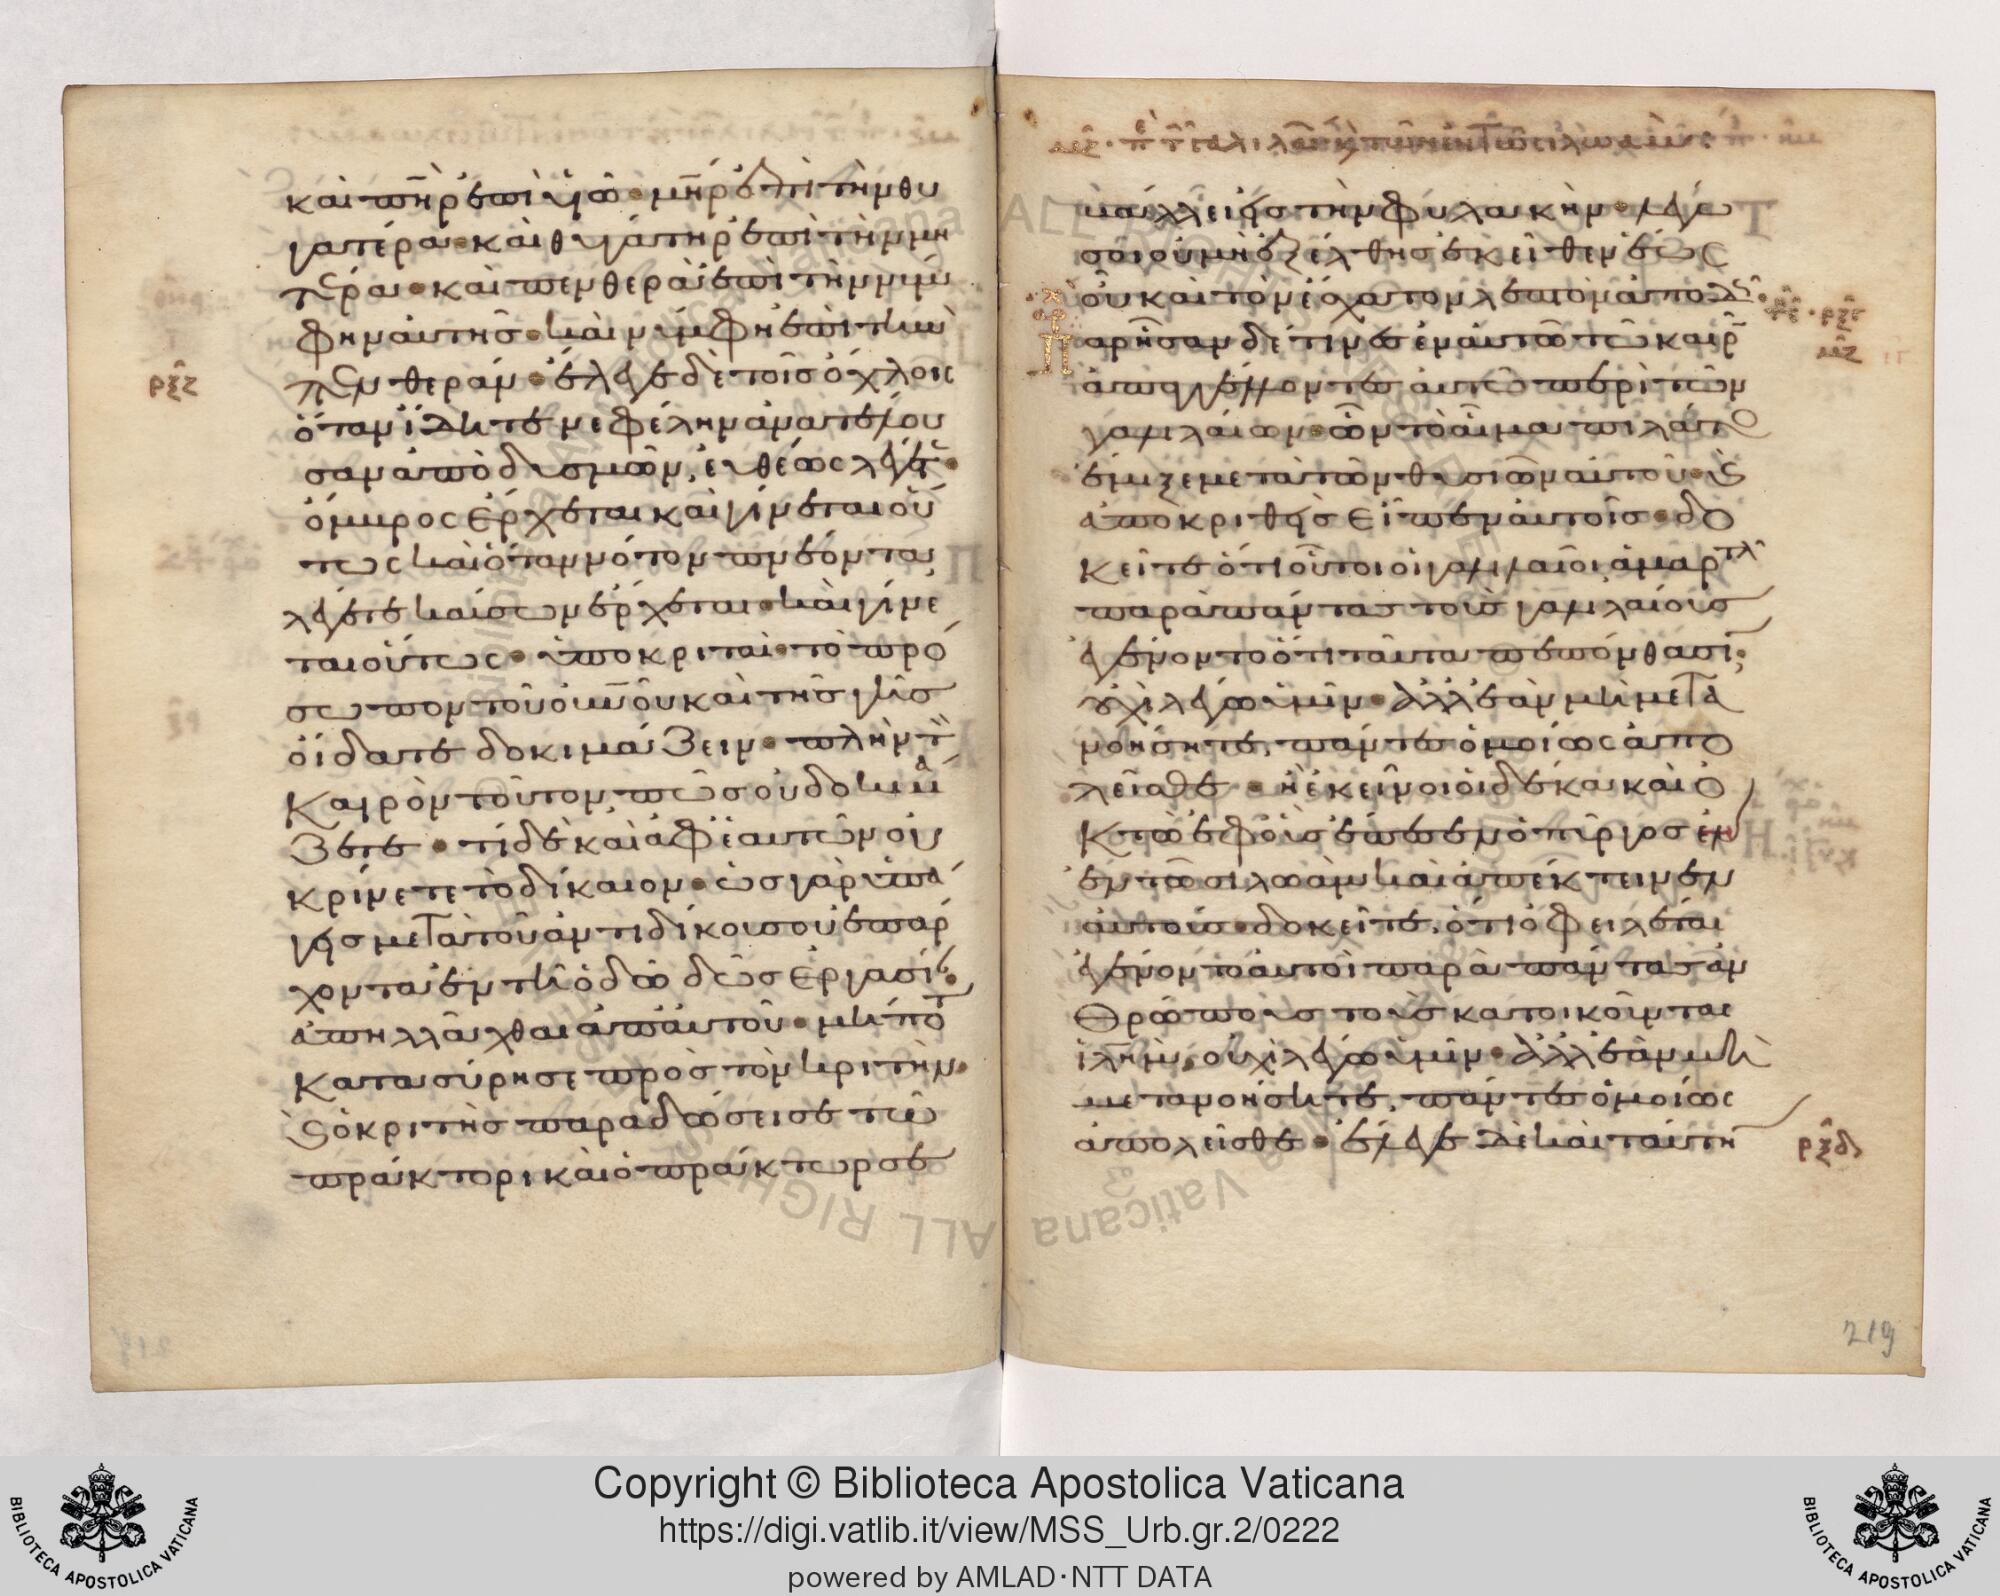 καὶ π̅η̅ρ ἐπὶ υ̅ω̅· μ̅η̅ρ ἐπὶ τὴν θυ
γατέρα· καὶ θυγάτηρ ἐπὶ τὴν μη
τέρα· καὶ πενθερὰ ἐπὶ τὴν νύμ
φην αὐτῆς· καὶ νύμφη ἐπὶ τὴν
πενθεράν· ἔλεγε δὲ τοῖς ὄχλοις
ρξζ
ὅταν ἴδητε νεφέλην ἀνατέλου
σαν ἀπὸ δυσμῶν, εὐθέως λέγετε·
ὄμβρος ἔρχεται καὶ γίνεται οὕ
τως καὶ ὅταν νότον πνέοντα
λέγετε καύσων ἔρχεται· καὶ γίνε
ται οὕτως· ὑποκριταὶ· τὸ πρό
σωπον τοῦ ο̅υ̅ν̅ο̅υ καὶ τῆς γῆς
οἴδατε δοκιμάζειν· πλὴν τὸν
καιρὸν τοῦτον, πῶς οὐ δοκιμά
ζετε· τί δὲ καὶ ἀφ' ἑαυτῶν οὐ
κρίνετε τὸ δίκαιον· ὡς γὰρ ὑπά
γεις μετὰ τοῦ ἀντιδίκου σου ἐπ' ἄρ
χοντα ἐν τῆ ὁδῶ δὸς ἐργασίαν·
ἀπηλλάχθαι ἀπ' αὐτοῦ· μήποτε
κατασύρη σε πρὸς τὸν κριτὴν·
καὶ ὁ κριτὴς παραδώσει σε τῶ
πράκτορι καὶ ὁ πράκτωρ σε
βάλλει εἰς τὴν φυλακὴν· λέγω
σοι οὐ μὴ ἐξέλθης ἐκεῖθεν ἕως
οὗ καὶ τὸν ἔσχατον λεπτὸν ἀποδῶς·
Παρῆσαν δέ τινες ἐν αὐτῶ τῶ καιρῶ
ἀπαγγέλλοντες αὐτῶ περὶ τῶν
γαλιλαίων· ὧν τὸ αἷμα πιλάτος
ἔμιξε μετὰ τῶν θυσιῶν αὐτοῦ· καὶ
ἀποκριθεὶς εἶπεν αὐτοῖς· δο
κεῖτε ὅτι οὗτοι οἱ γαλιλαῖοι, ἁμαρτωλοὶ
παρὰ πάντας τοὺς γαλιλαίους
ἐγένοντο ὅτι ταῦτα πεπόνθασιν;
οὐχὶ λέγω ὑμῖν· ἀλλ' ἐὰν μὴ μετα
νοήσητε, πάντες ὁμοίως ἀπο
λεῖσθε· ἢ ἐκεῖνοι οἱ δέκα καὶ ὀ
κτὼ ἐφ' οὓς ἔπεσεν ὁ πύργος ἐν
ἐν τῶ σιλωὰμ καὶ ἀπέκτεινεν
αὐτούς· δοκεῖτε, ὅτι ὀφειλέται
ἐγένοντο αὐτοὶ παρὰ πάντας ἀν
θρώπους τοὺς κατοικοῦντας
ι̅λ̅η̅μ̅, οὐχὶ λέγω ὑμῖν· ἀλλ' ἐὰν μὴ
μετανοήσητε, πάντες ὁμοίως
ἀπολεῖσθε· ἔλεγε δὲ καὶ ταύτη
ρξδ
219
Copyright © Biblioteca Apostolica Vaticana
https://digi.vatlib.it/view/MSS_Urb.gr.2/0222
powered by AMLAD·NTT DATA
BIBLIOTECA APOSTOLICA VATICANA
BIBLIOTECA APOSTOLICA VATICANA